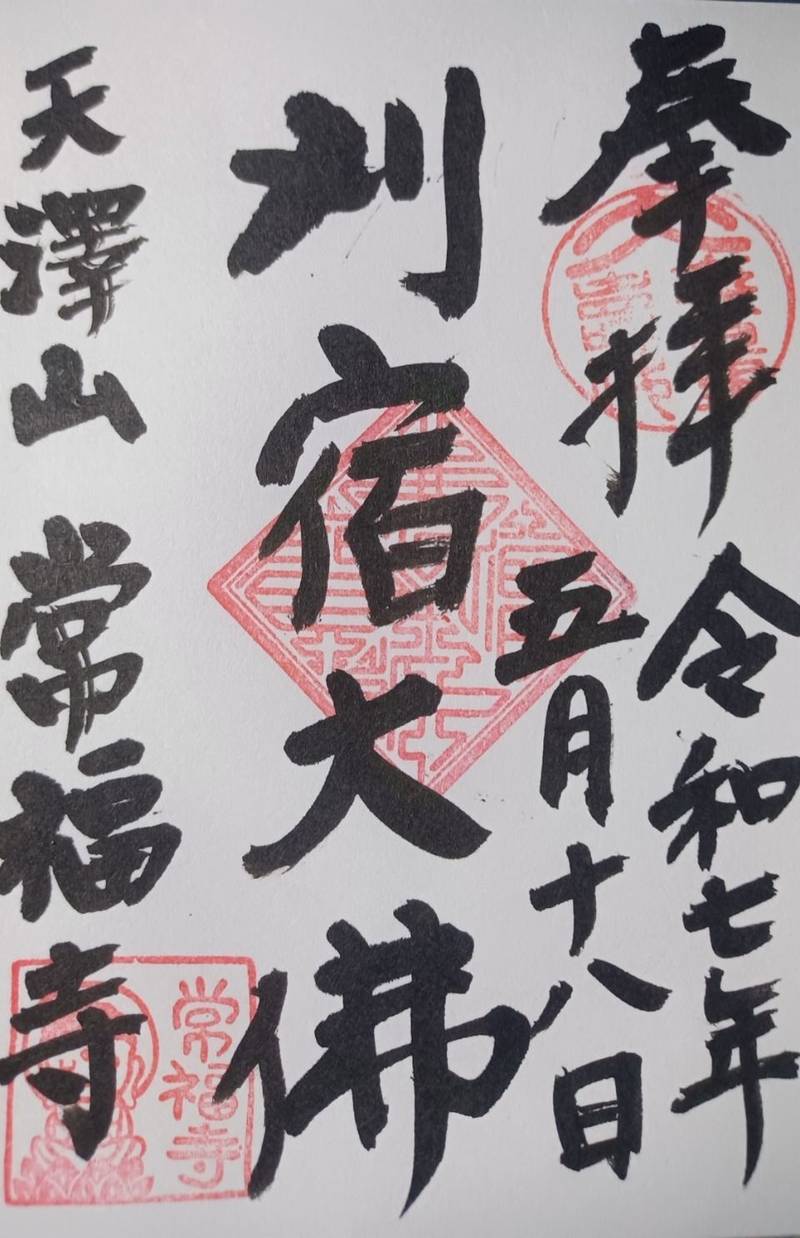 奉拝
令和七年
五月十八日
刈宿大佛
天澤山 常福寺
常福寺